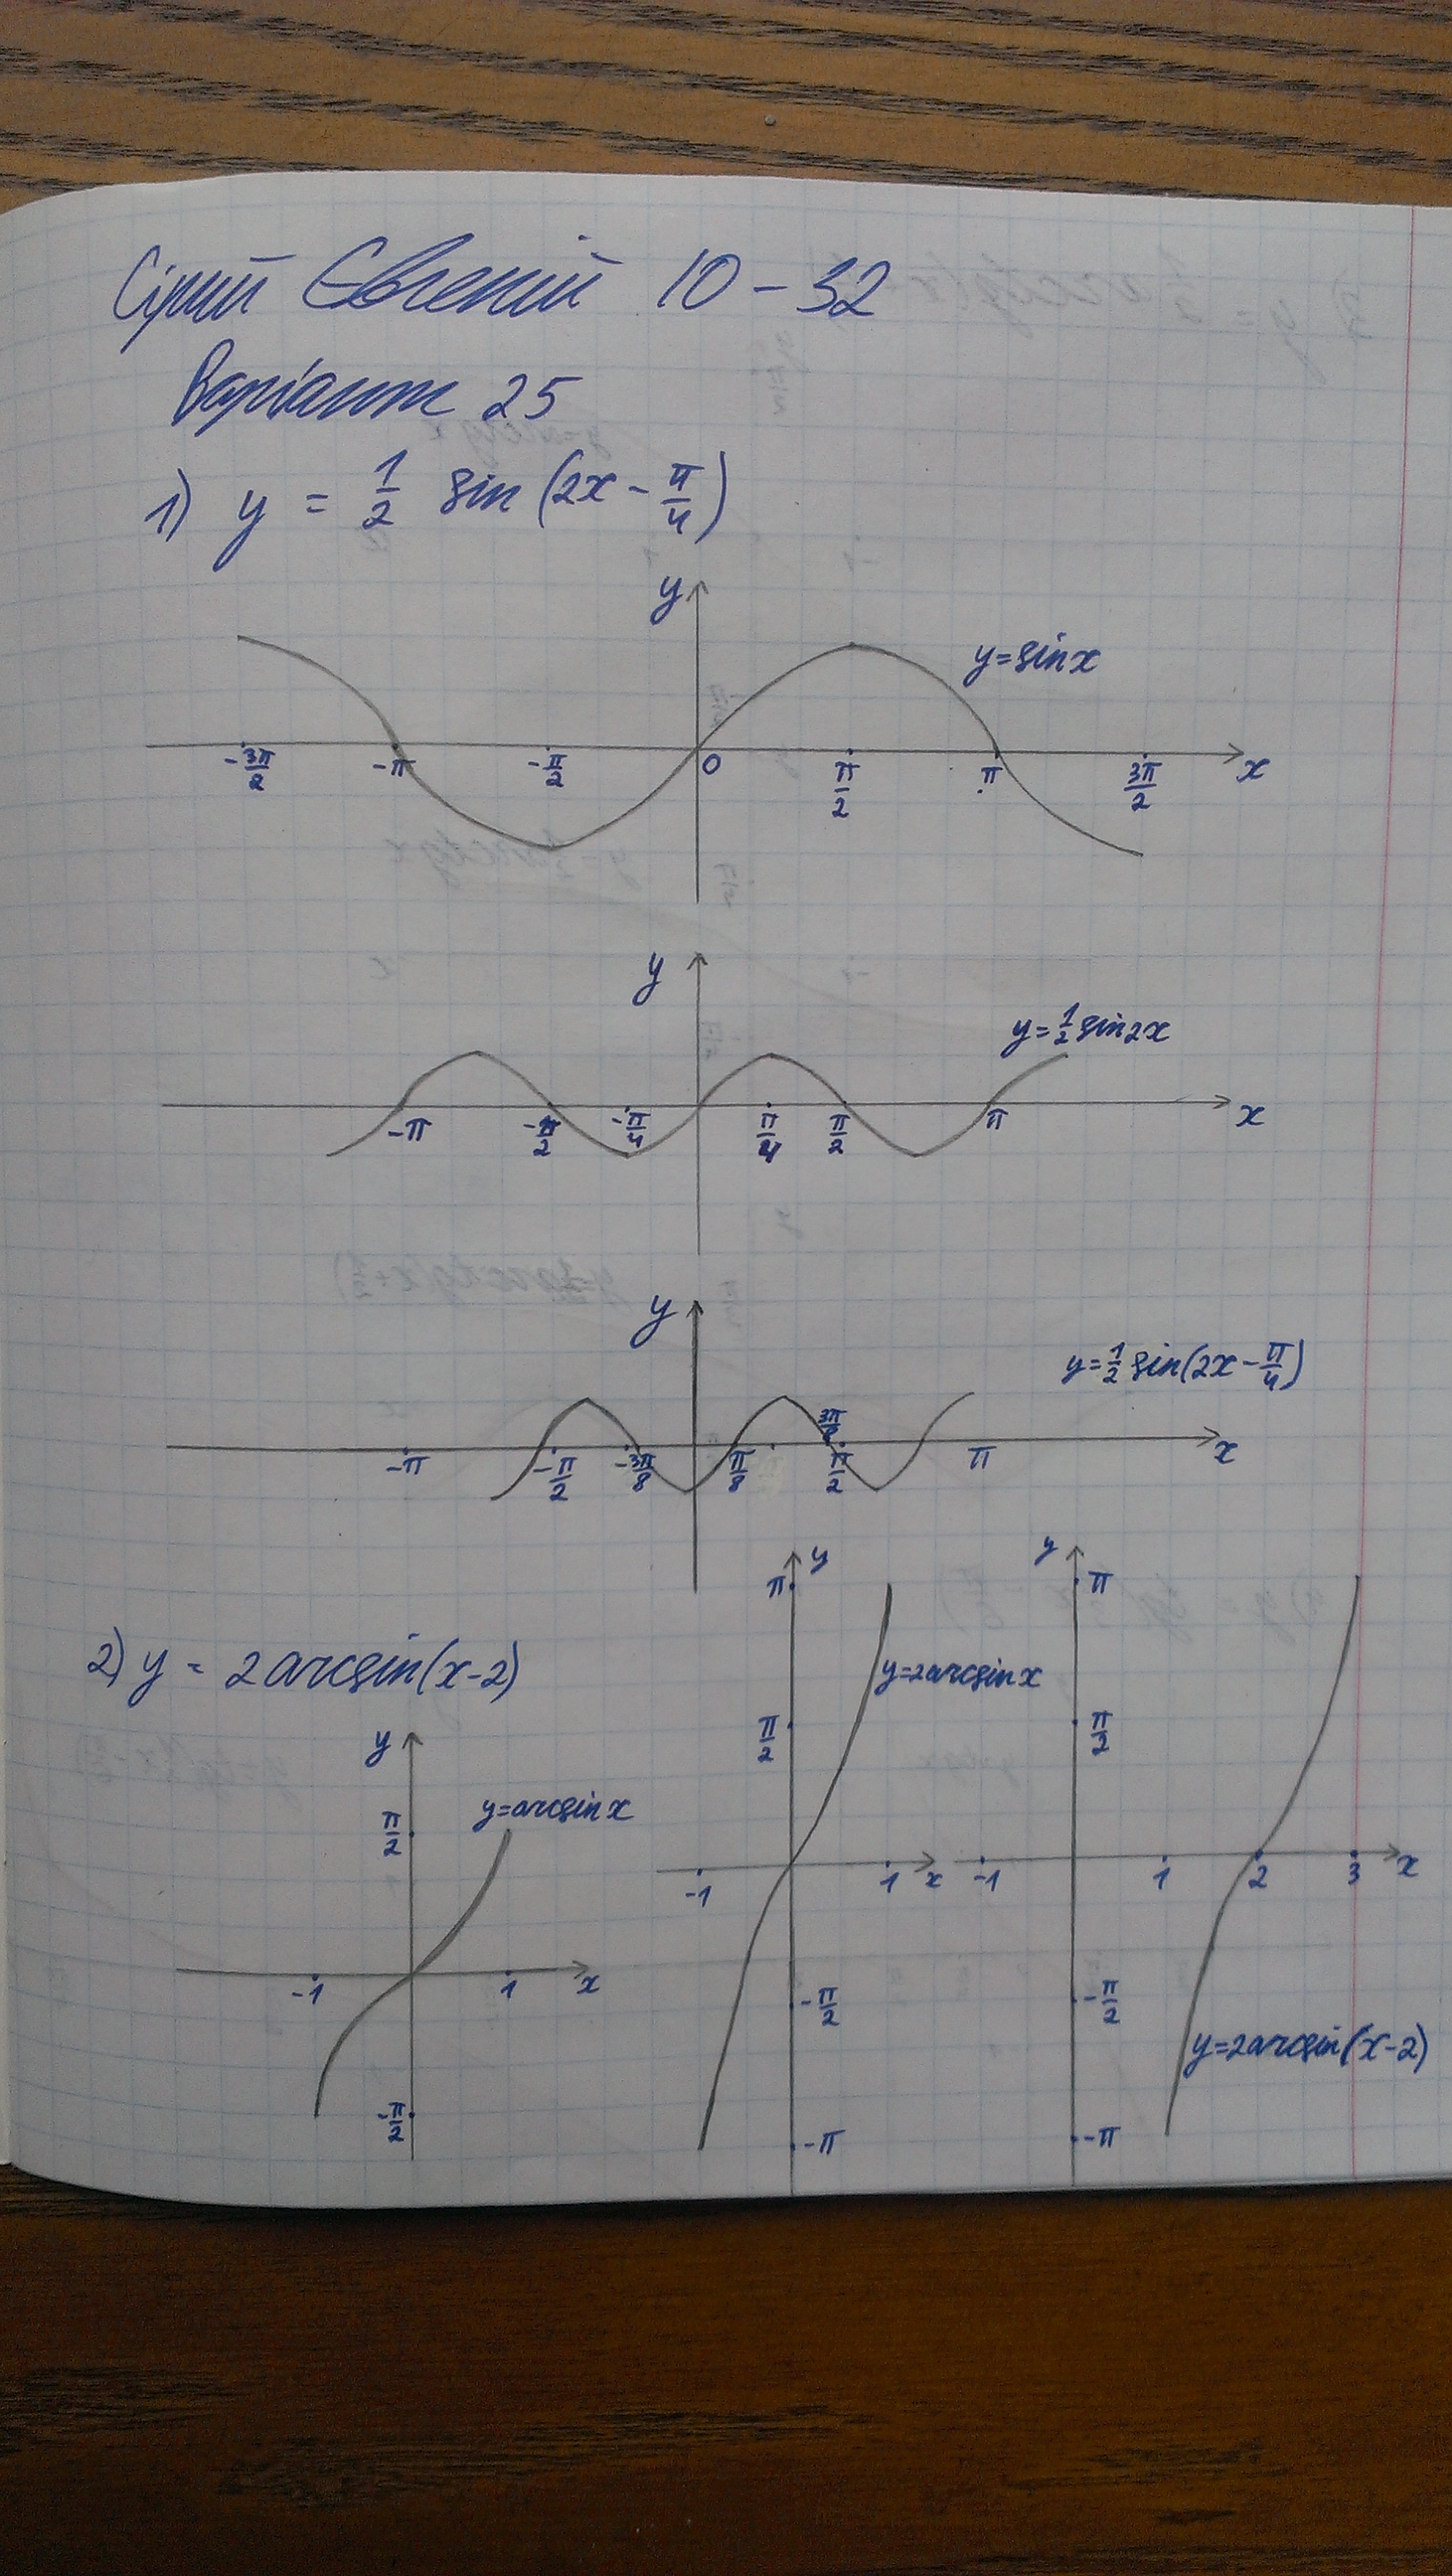 Сірий Євгеній 10-32
Варіант 25
1) y = 1/2 sin (2x - π/4)
y
y=sinx
-3π/2 -π -π/2 0 π/2 π 3π/2 x
y
y=1/2 sin2x
-π -π/2 -π/4 π/4 π/2 π x
y
y=1/2 sin(2x-π/4)
-π -π/2 -3π/8 π/8 π/2 π x
2) y = 2arcsin(x-2)
y
π/2
y=arcsinx
-1 1 x
-π/2
y
π
y=2arcsinx
π/2
-1 1 x
-π/2
-π
y
π
π/2
-1 1 2 3 x
-π/2
y=2arcsin(x-2)
-π